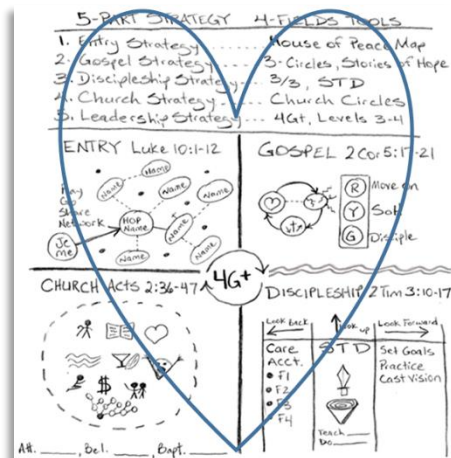 5-PART STRATEGY 4-FIELDS TOOLS
1. Entry Strategy ...... House of Peace Map
2. Gospel Strategy .... 3-Circles, Stories of Hope
3. Discipleship Strategy... 3/3, STD
4. Church Strategy ... Church Circles
5. Leadership Strategy.... 4G+, Levels 3-4
ENTRY Luke 10:1-12
Name
Name
Name
Name
Pray
Go
Share
Network
HOP
Name
Name
Name
Name
Je
me
GOSPEL 2 Cor 5:17-21
R Move on
Y
G Disciple
4G+
CHURCH ACTS 2:36-47
$
Att. ____, Bel. ____, Bapt. ____
DISCIPLESHIP 2 Tim 3:10-17
Look back
Look up
Look Forward
Care
Acct.
F1
F2
F3
F4
STD
Teach
Do
Set Goals
Practice
Cast Vision